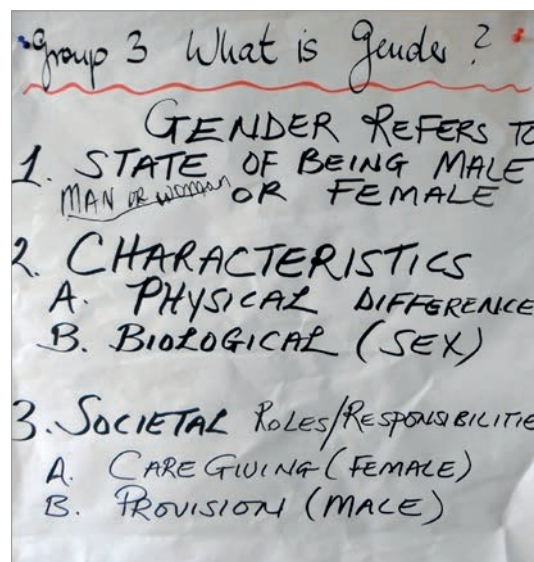 Group 3 What is Gender?
GENDER REFERS TO
1. STATE OF BEING MALE
MAN OR WOMAN OR FEMALE
2. CHARACTERISTICS
A. PHYSICAL DIFFERENCE
B. BIOLOGICAL (SEX)
3. SOCIETAL ROLES/RESPONSIBILITIE
A. CARE GIVING (FEMALE)
B. PROVISION (MALE)